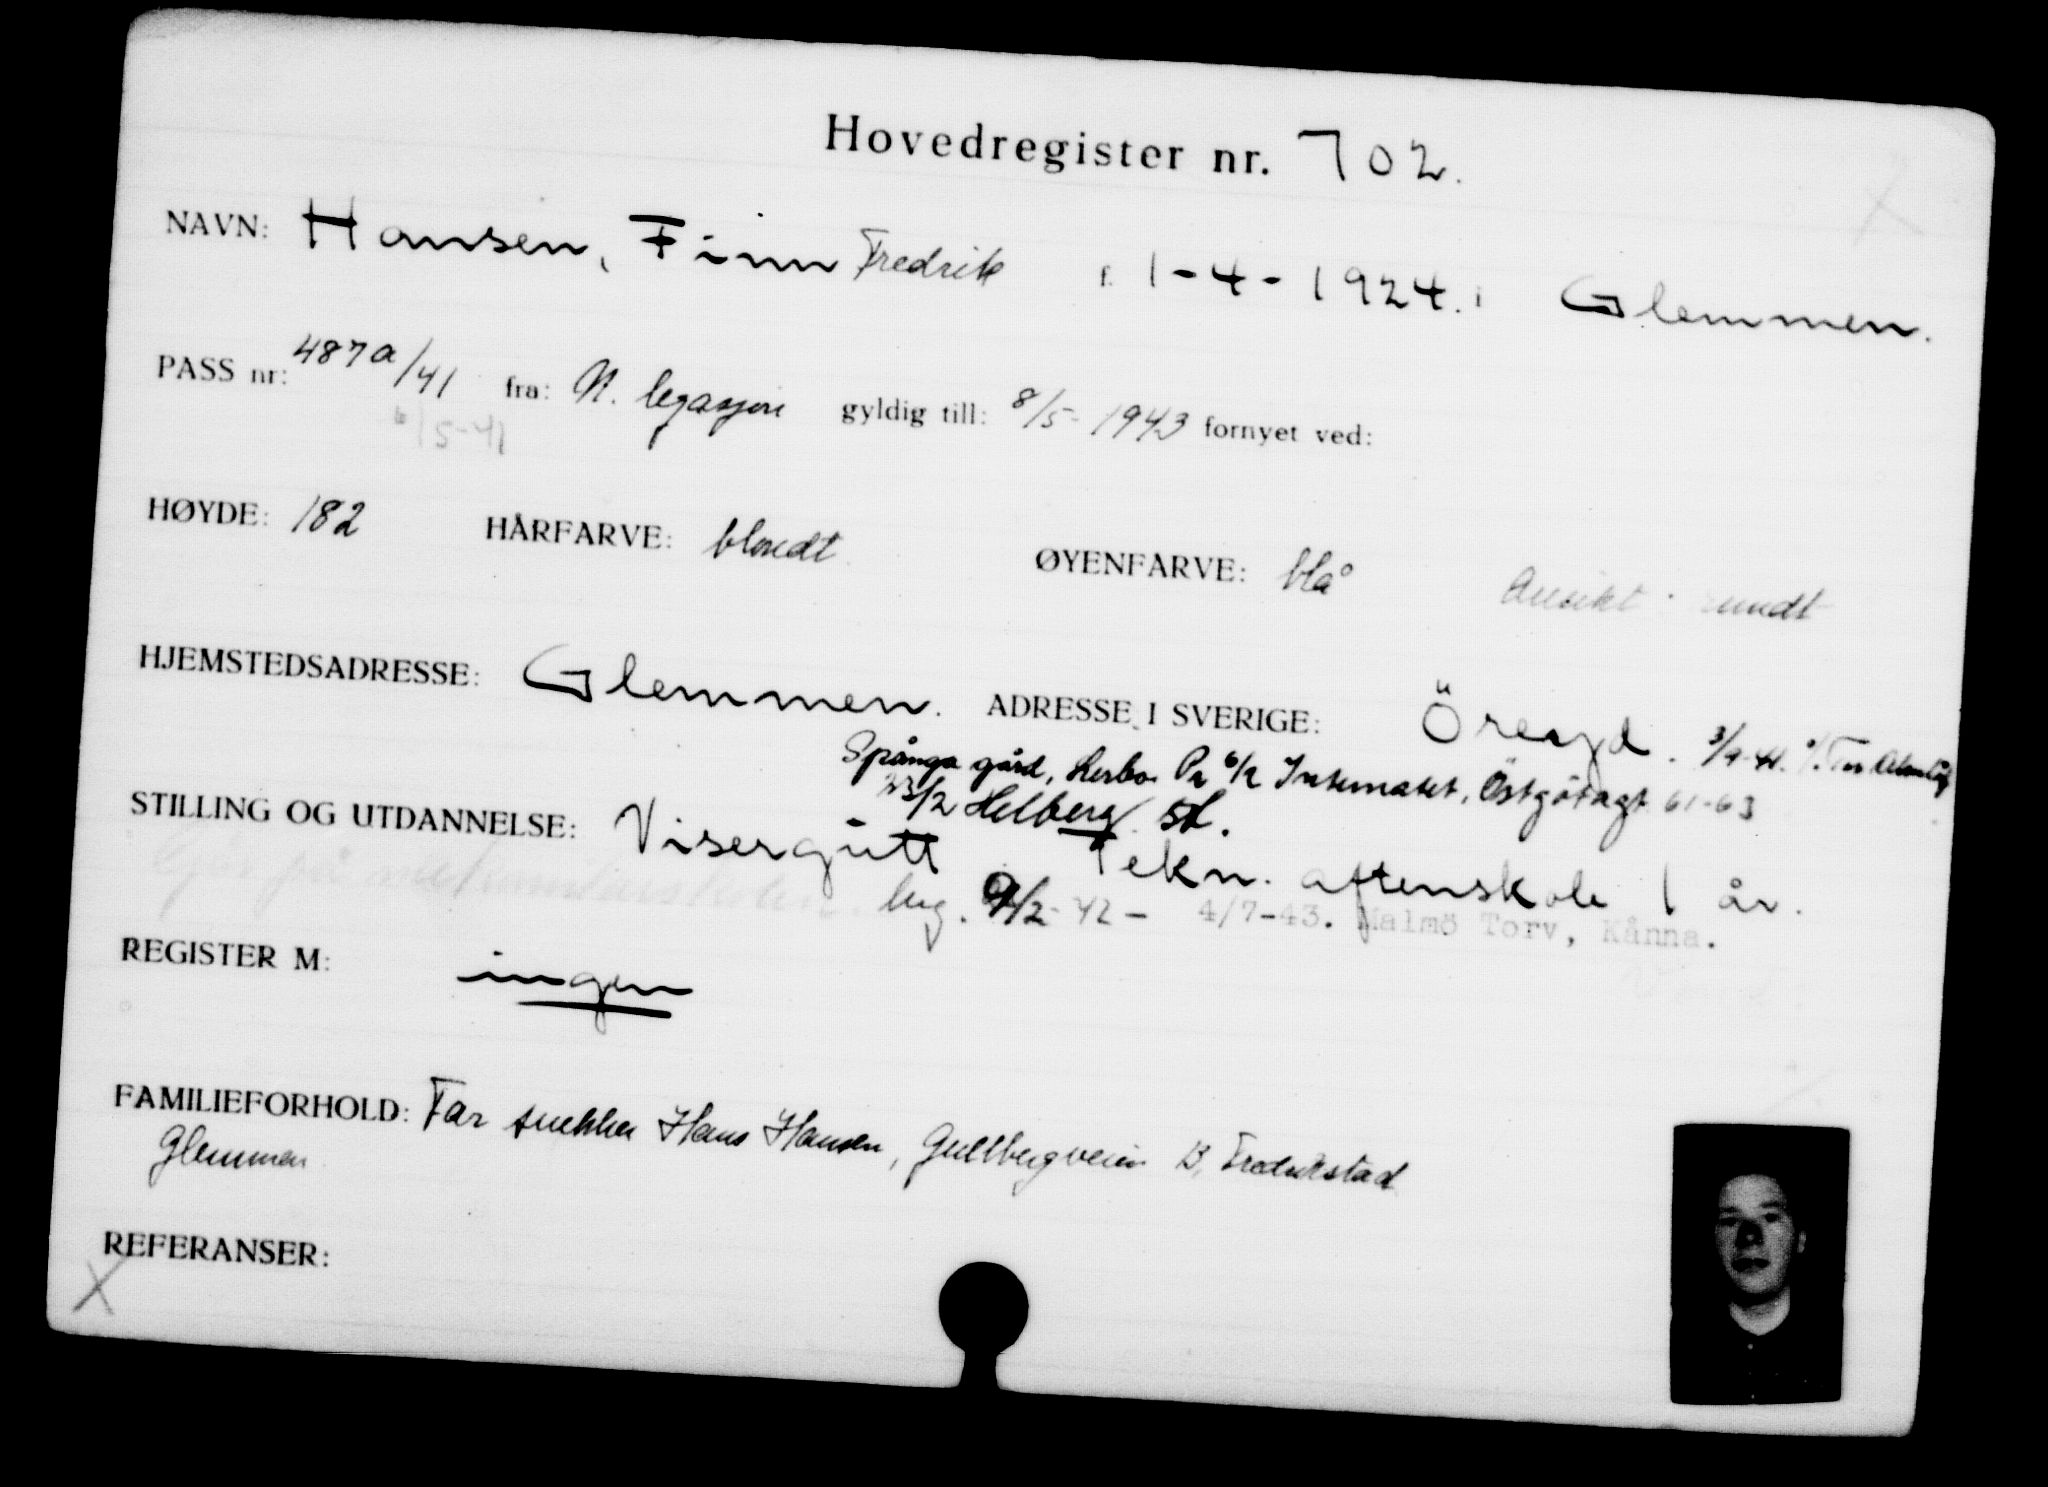 Hovedregister nr. 702.
NAVN: Hansen, Finn Fredrik f. 1-4-1924. i Glemmen.
PASS nr: 487a/41 fra: N. legasjon gyldig till: 8/5-1943 fornyet ved:
6/5-41
HØYDE: 182 HÅRFARVE: blondt ØYENFARVE: blå Ansikt: rundt
HJEMSTEDSADRESSE: Glemmen. ADRESSE I SVERIGE: Öreryd. 3/9-41.
Spånga gård, 6/2 Internatet, Östgötagt 61-63
23/2 Helberg St.
STILLING OG UTDANNELSE: Visergutt Tekn. aftenskole 1 år.
Går på
9/2-42 - 4/7-43. Malmö Torv, Kånna.
REGISTER M: ingen
FAMILIEFORHOLD: Far snekker Hans Hansen, Gullbergveien 13, Fredrikstad
Glemmen
REFERANSER:
X